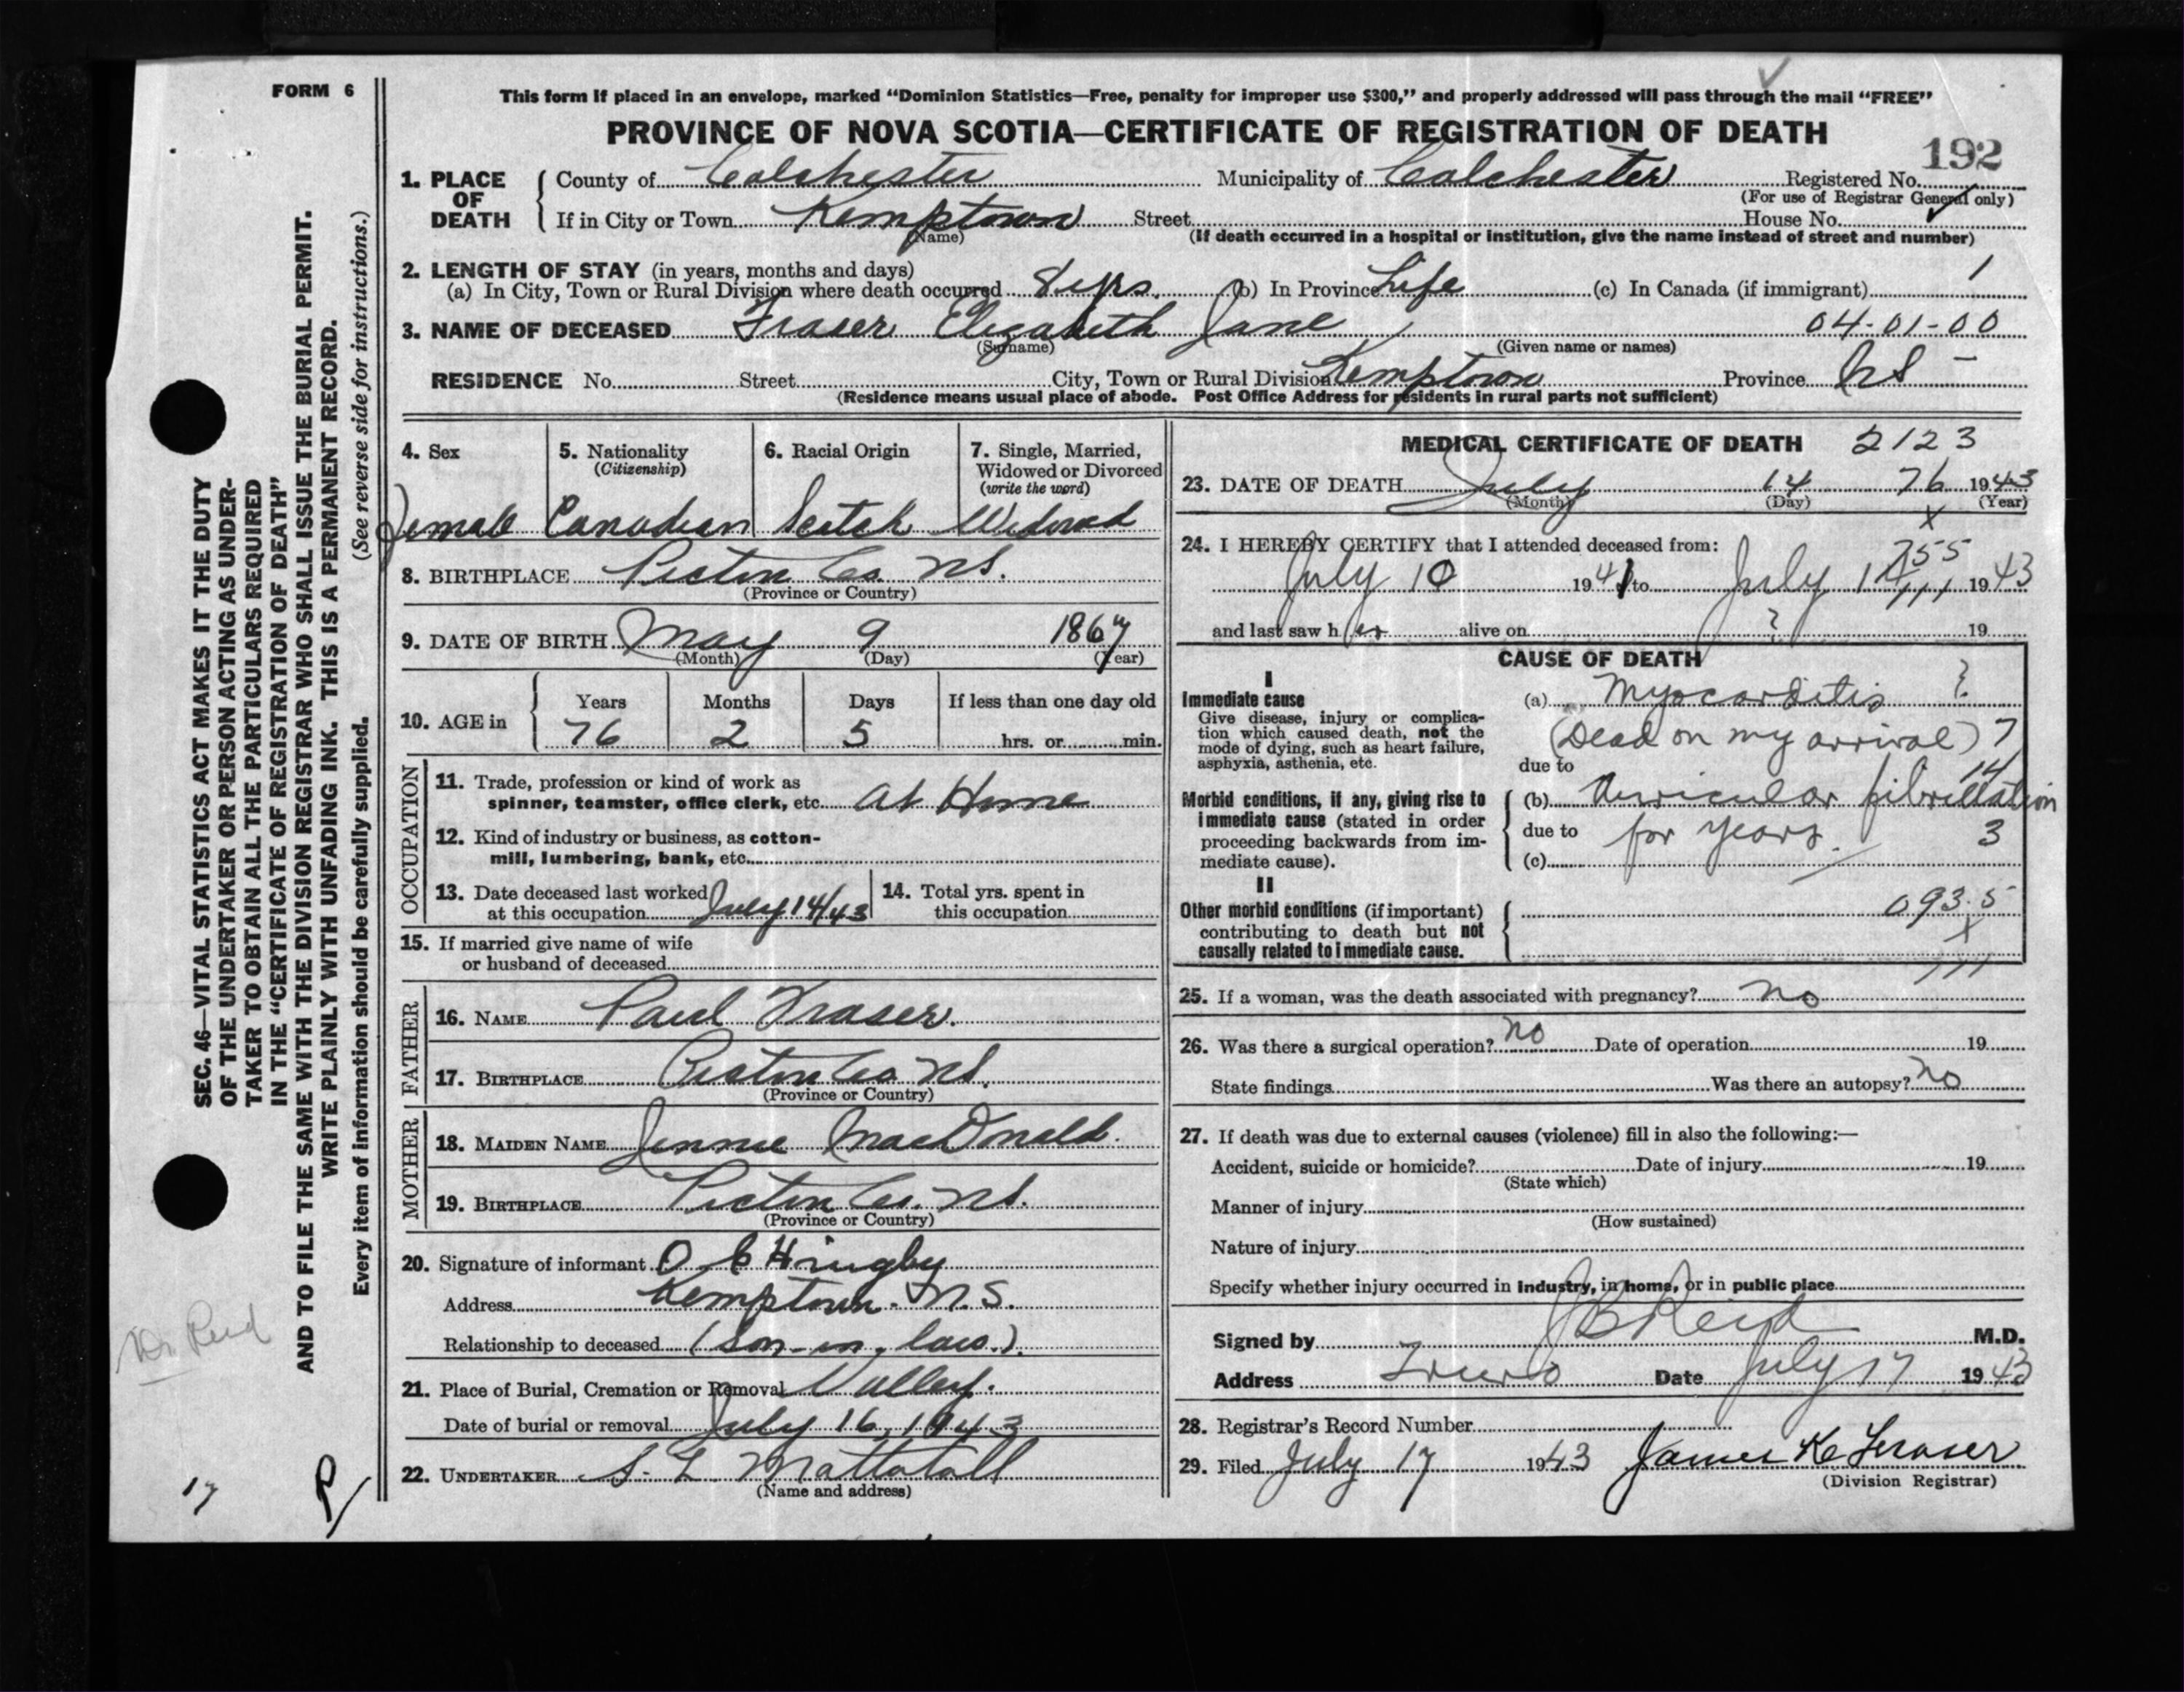 FORM 6
This form if placed in an envelope, marked "Dominion Statistics—Free, penalty for improper use $300," and properly addressed will pass through the mail "FREE"
PROVINCE OF NOVA SCOTIA—CERTIFICATE OF REGISTRATION OF DEATH
192
1. PLACE OF DEATH County of Colchester Municipality of Colchester Registered No.
(For use of Registrar General only)
If in City or Town Kemptown Street House No.
(Name) (If death occurred in a hospital or institution, give the name instead of street and number)
2. LENGTH OF STAY (in years, months and days) 1
(a) In City, Town or Rural Division where death occurred 8 yrs. (b) In Province Life (c) In Canada (if immigrant)
3. NAME OF DECEASED Fraser Elizabeth Jane 04-01-00
(Surname) (Given name or names)
RESIDENCE No. Street City, Town or Rural Division Kemptown Province NS
(Residence means usual place of abode. Post Office Address for residents in rural parts not sufficient)
4. Sex 5. Nationality (Citizenship) 6. Racial Origin 7. Single, Married, Widowed or Divorced (write the word)
Female Canadian Scotch Widowed
8. BIRTHPLACE Pictou Co NS.
(Province or Country)
9. DATE OF BIRTH May 9 1867
(Month) (Day) (Year)
10. AGE in Years Months Days If less than one day old
76 2 5 hrs. or min.
OCCUPATION
11. Trade, profession or kind of work as
spinner, teamster, office clerk, etc. at Home
12. Kind of industry or business, as cotton-
mill, lumbering, bank, etc.
13. Date deceased last worked at this occupation July 14/43
14. Total yrs. spent in this occupation
15. If married give name of wife
or husband of deceased
FATHER
16. NAME Paul Fraser.
17. BIRTHPLACE Pictou Co NS.
(Province or Country)
MOTHER
18. MAIDEN NAME Jennie MacDonald.
19. BIRTHPLACE Pictou Co. NS.
(Province or Country)
20. Signature of informant O C Hingby
Address Kemptown. N.S.
Relationship to deceased (Son-in-law.)
21. Place of Burial, Cremation or Removal Valley.
Date of burial or removal July 16, 1943
22. UNDERTAKER S. L. Mattatall
(Name and address)
MEDICAL CERTIFICATE OF DEATH 2123
23. DATE OF DEATH July 14 76 1943
(Month) (Day) (Year)
X
24. I HEREBY CERTIFY that I attended deceased from:
July 10 1941 to July 14 1943
and last saw her alive on ? 19
CAUSE OF DEATH
I
Immediate cause
Give disease, injury or complica-
tion which caused death, not the
mode of dying, such as heart failure,
asphyxia, asthenia, etc.
(a) Myocarditis ?
(Dead on my arrival) 7
due to
14
Morbid conditions, if any, giving rise to
immediate cause (stated in order
proceeding backwards from im-
mediate cause).
(b) Auricular fibrillation
due to for years. 3
(c)
II
Other morbid conditions (if important)
contributing to death but not
causally related to immediate cause.
093.5
X
111
25. If a woman, was the death associated with pregnancy? no
26. Was there a surgical operation? no Date of operation 19
State findings Was there an autopsy? no
27. If death was due to external causes (violence) fill in also the following:—
Accident, suicide or homicide? Date of injury 19
(State which)
Manner of injury
(How sustained)
Nature of injury
Specify whether injury occurred in Industry, in home, or in public place
Signed by J B Reid M.D.
Address Truro Date July 17 1943
28. Registrar's Record Number
29. Filed July 17 1943 James K Fraser
(Division Registrar)
SEC. 46—VITAL STATISTICS ACT MAKES IT THE DUTY
OF THE UNDERTAKER OR PERSON ACTING AS UNDER-
TAKER TO OBTAIN ALL THE PARTICULARS REQUIRED
IN THE "CERTIFICATE OF REGISTRATION OF DEATH"
AND TO FILE THE SAME WITH THE DIVISION REGISTRAR WHO SHALL ISSUE THE BURIAL PERMIT.
WRITE PLAINLY WITH UNFADING INK. THIS IS A PERMANENT RECORD.
Every item of information should be carefully supplied. (See reverse side for instructions.)
Dr Reid
17